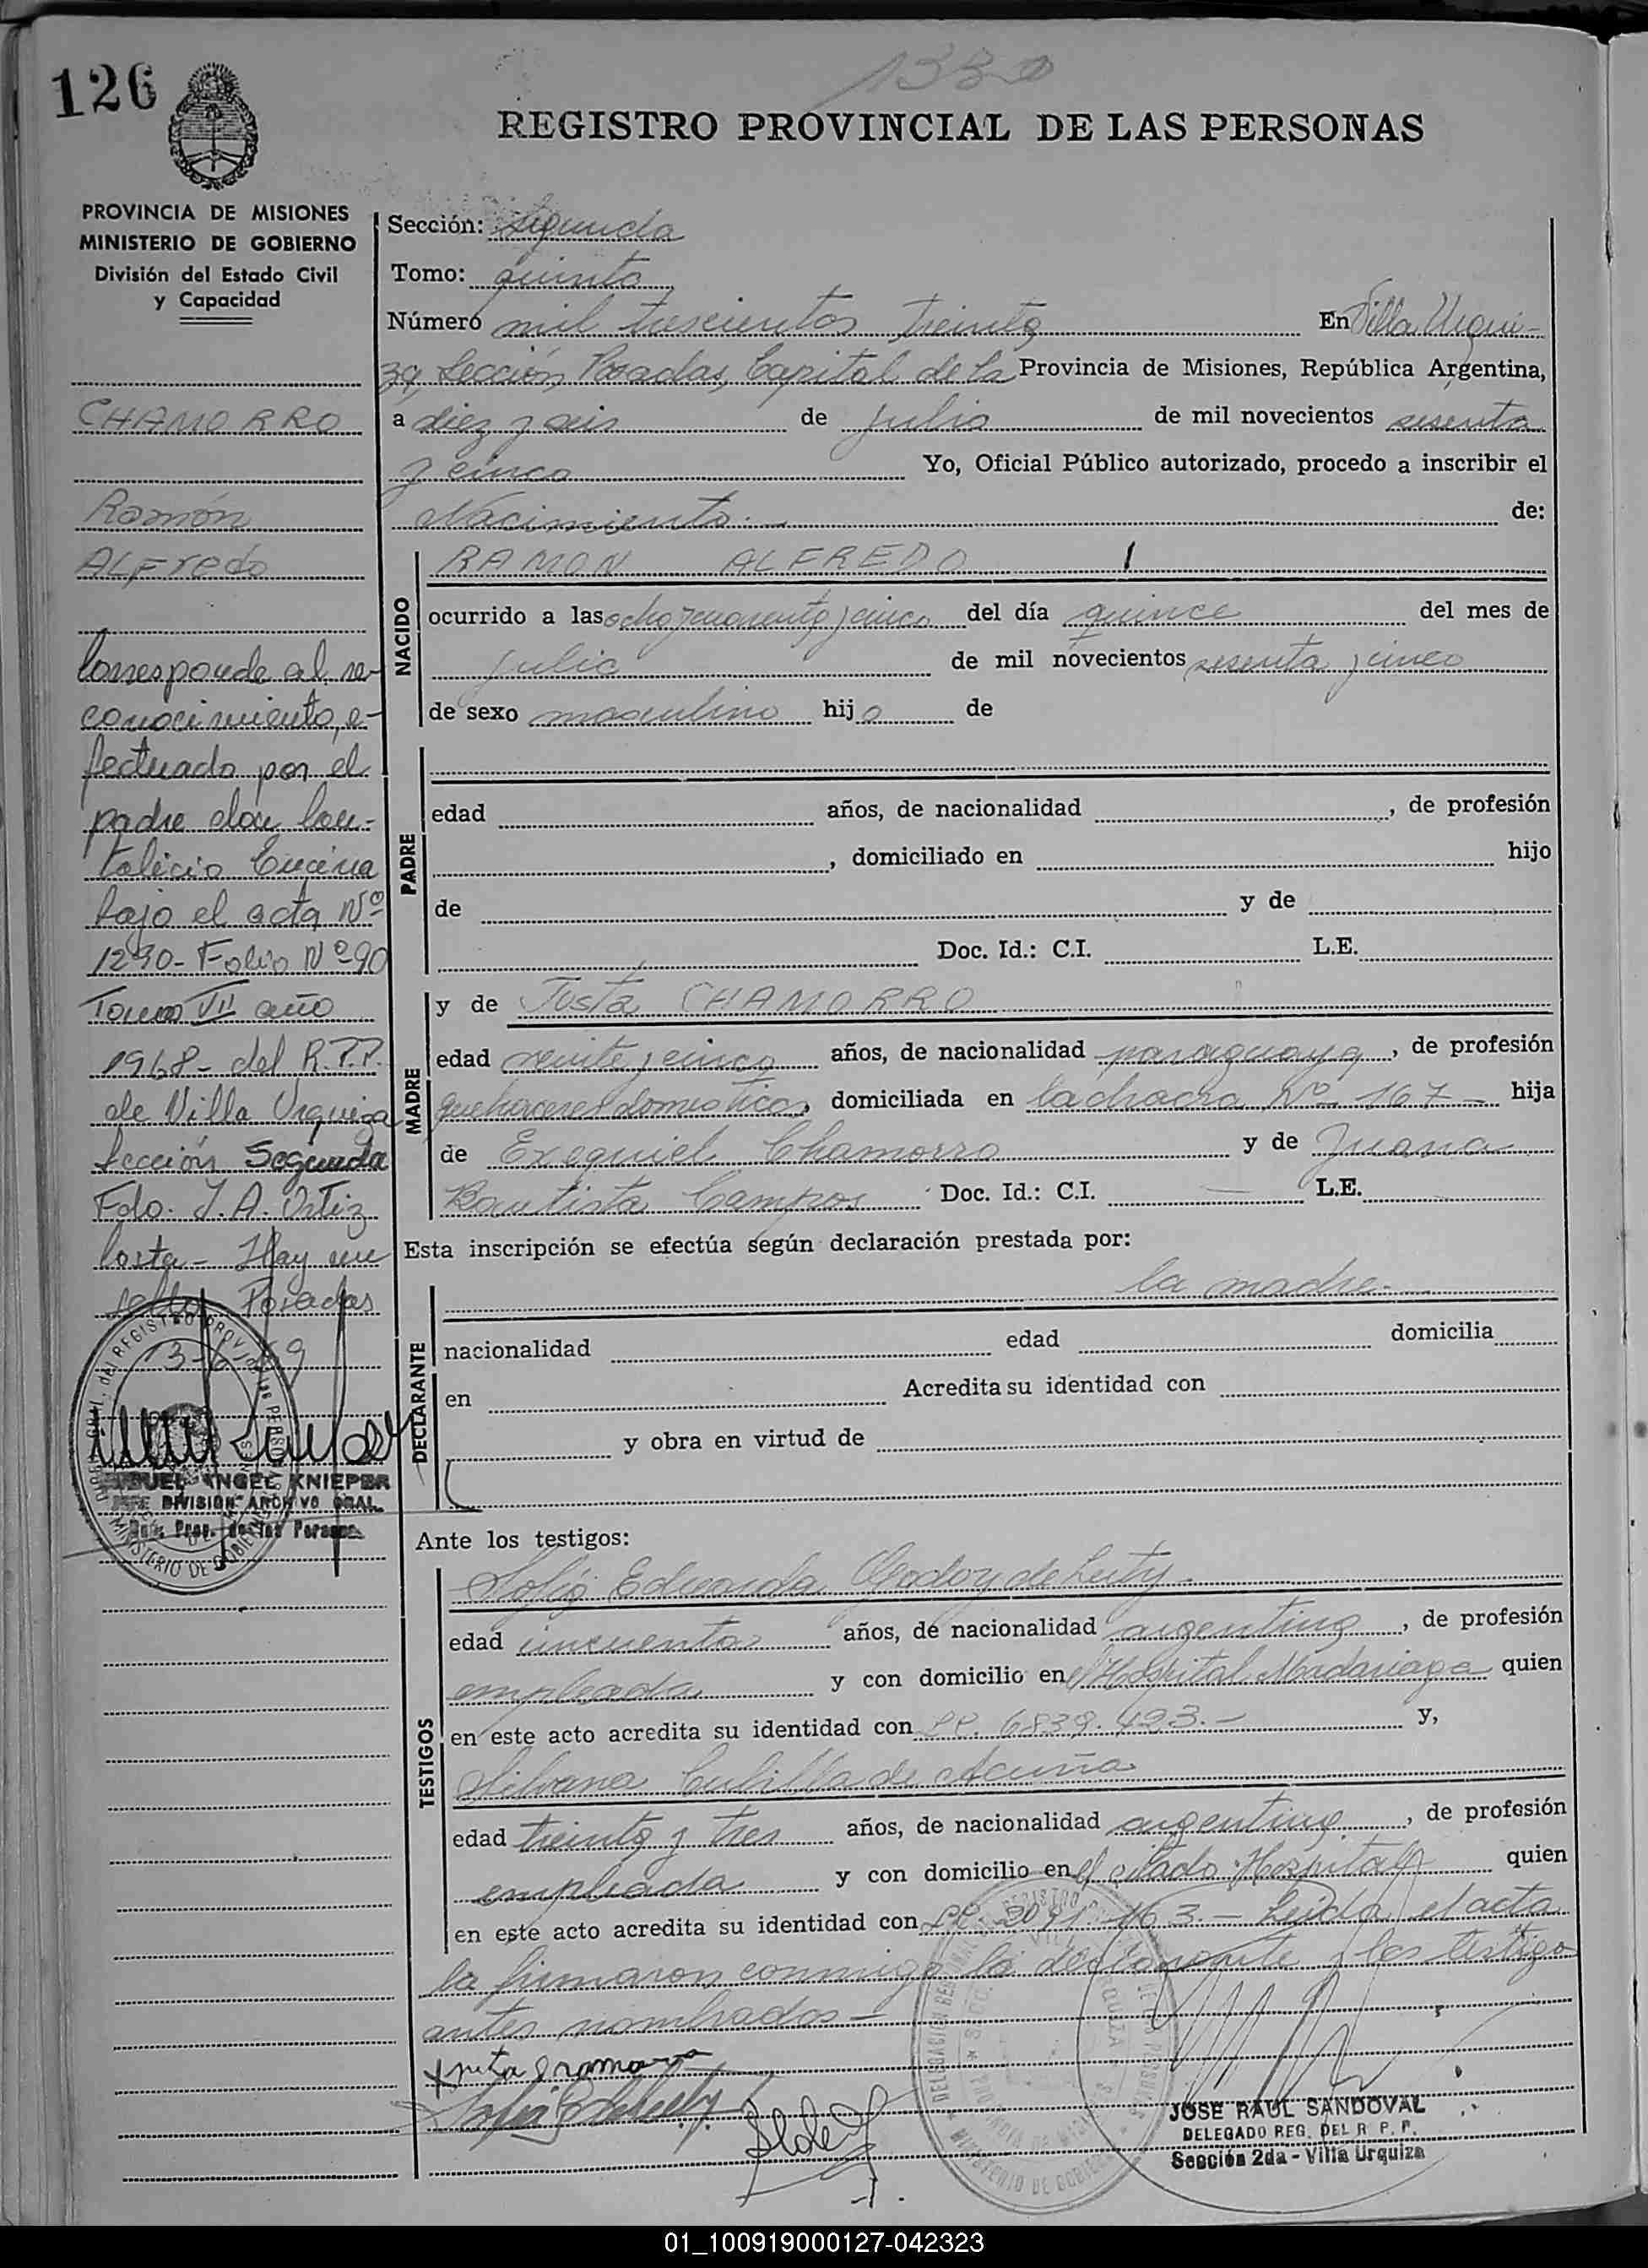 126
1330
REGISTRO PROVINCIAL DE LAS PERSONAS
PROVINCIA DE MISIONES
MINISTERIO DE GOBIERNO
División del Estado Civil
y Capacidad
CHAMORRO
Ramón
ALFredo
Corresponde al re-
conocimiento, e-
fectuado por el
padre don Can-
talicio Encina
bajo el acta Nº
1290- Folio Nº 90
Tomo VII año
1968- del R.P.P.
de Villa Urquiza
Sección Segunda
Fdo. J.A. Ortiz
Costa- Hay un
sello Posadas
MIGUEL ANGEL KNIEPER
JEFE DIVISION ARCHIVO GRAL.
Reg. Prov. de las Personas
Sección: Segunda
Tomo: quinto
Número mil trescientos treinta En Villa Urqui-
za, Sección Posadas, Capital de la Provincia de Misiones, República Argentina,
a diez y seis de julio de mil novecientos sesenta
y cinco Yo, Oficial Público autorizado, procedo a inscribir el
Nacimiento.- de:
NACIDO
RAMON ALFREDO
ocurrido a las ocho y cuarenta y cinco del día quince del mes de
julio de mil novecientos sesenta y cinco
de sexo masculino hijo de
PADRE
edad años, de nacionalidad , de profesión
, domiciliado en hijo
de y de
Doc. Id.: C.I. L.E.
MADRE
y de Justa CHAMORRO
edad veinte y cinco años, de nacionalidad paraguaya, de profesión
quehaceres domesticos, domiciliada en la chacra Nº 167- hija
de Exequiel Chamorro y de Juana
Bautista Campos Doc. Id.: C.I. — L.E.
Esta inscripción se efectúa según declaración prestada por:
DECLARANTE
la madre.
nacionalidad edad domicilia
en Acredita su identidad con
y obra en virtud de
Ante los testigos:
TESTIGOS
Sofía Eduarda Godoy de
edad cincuenta años, de nacionalidad argentina, de profesión
empleada y con domicilio en el Hospital Madariaga quien
en este acto acredita su identidad con 6839.423.- y,
Silvana Cubilla de Acuña
edad treinta y tres años, de nacionalidad argentina, de profesión
empleada y con domicilio en el citado Hospital quien
en este acto acredita su identidad con Leída el acta
la firmaron conmigo la declarante y los testigos
antes nombrados-
JOSE RAUL SANDOVAL
DELEGADO REG. DEL R. P. P.
Sección 2da - Villa Urquiza
01_100919000127-042323